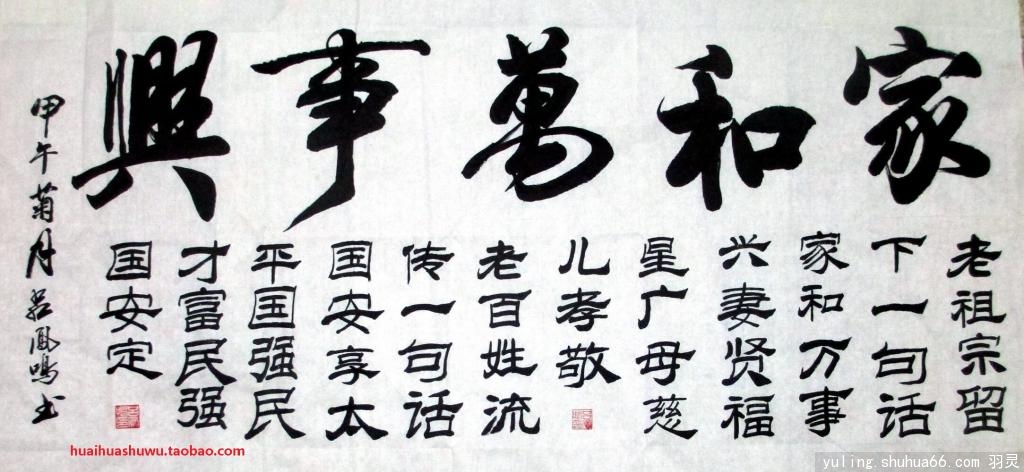 家和萬事興
老祖宗留
下一句话
家和万事
兴妻贤福
星广母慈
儿孝敬
老百姓流
传一句话
国安享太
平国强民
才富民强
国安定
甲午菊月吕凤鸣书
huaihuashuwu.taobao.com
yuling.shuhua66.com 羽灵